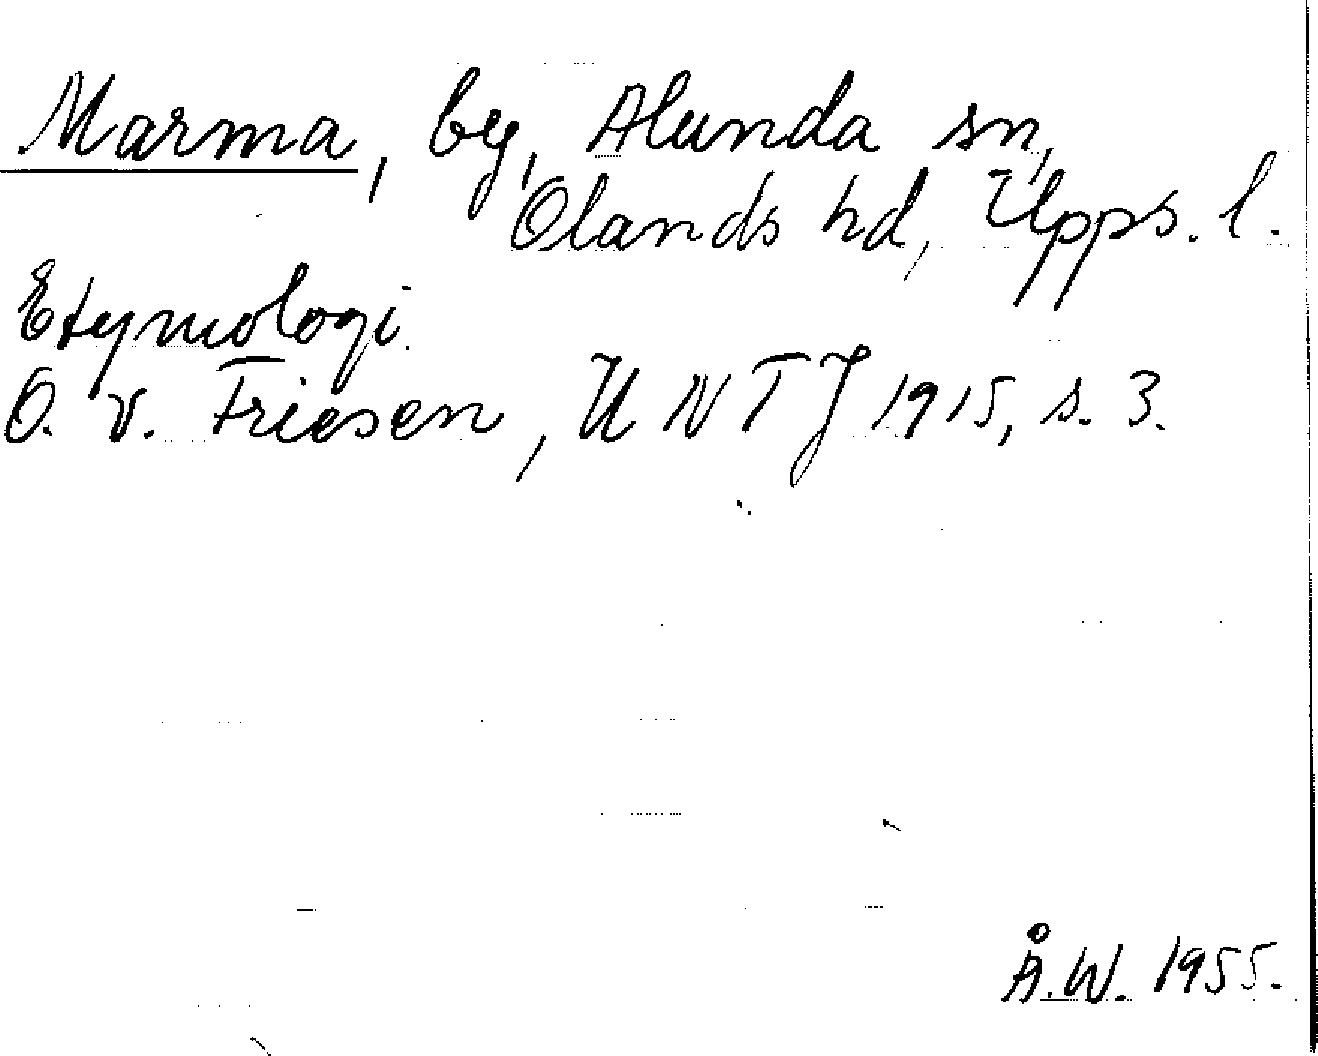 Marma, by, Alunda sn,
Olands hd, Upps. l.
Etymologi.
O. v. Friesen, UNTJ 1915, s. 3.
Å.W. 1955.